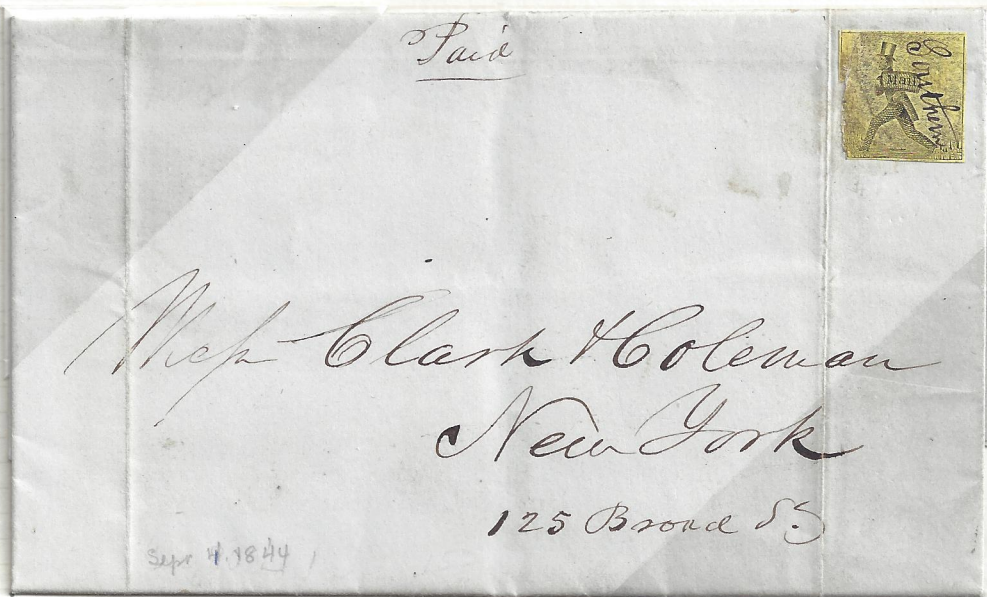 Paid
Smithers
Mail
Mess Clark & Coleman
New York
125 Broad St
Sepr 4. 1844